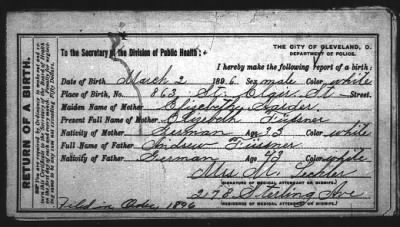 THE CITY OF CLEVELAND, O.
DEPARTMENT OF POLICE.
To the Secretary of the Division of Public Health:
I hereby make the following report of a birth:
Date of Birth March 2 1896. Sex male Color white
Place of Birth, No. 863 St. Clair St Street.
Maiden Name of Mother Elizabeth Harder
Present Full Name of Mother Elizabeth Füssner
Nativity of Mother German Age Color white
Full Name of Father Andrew Füssner
Nativity of Father German Age 43 Color white
Mrs M.
SIGNATURE OF MEDICAL ATTENDANT OR MIDWIFE.
2178 Sterling Ave
RESIDENCE OF MEDICAL ATTENDANT OR MIDWIFE.
Filed in Order 1896
RETURN OF A BIRTH.